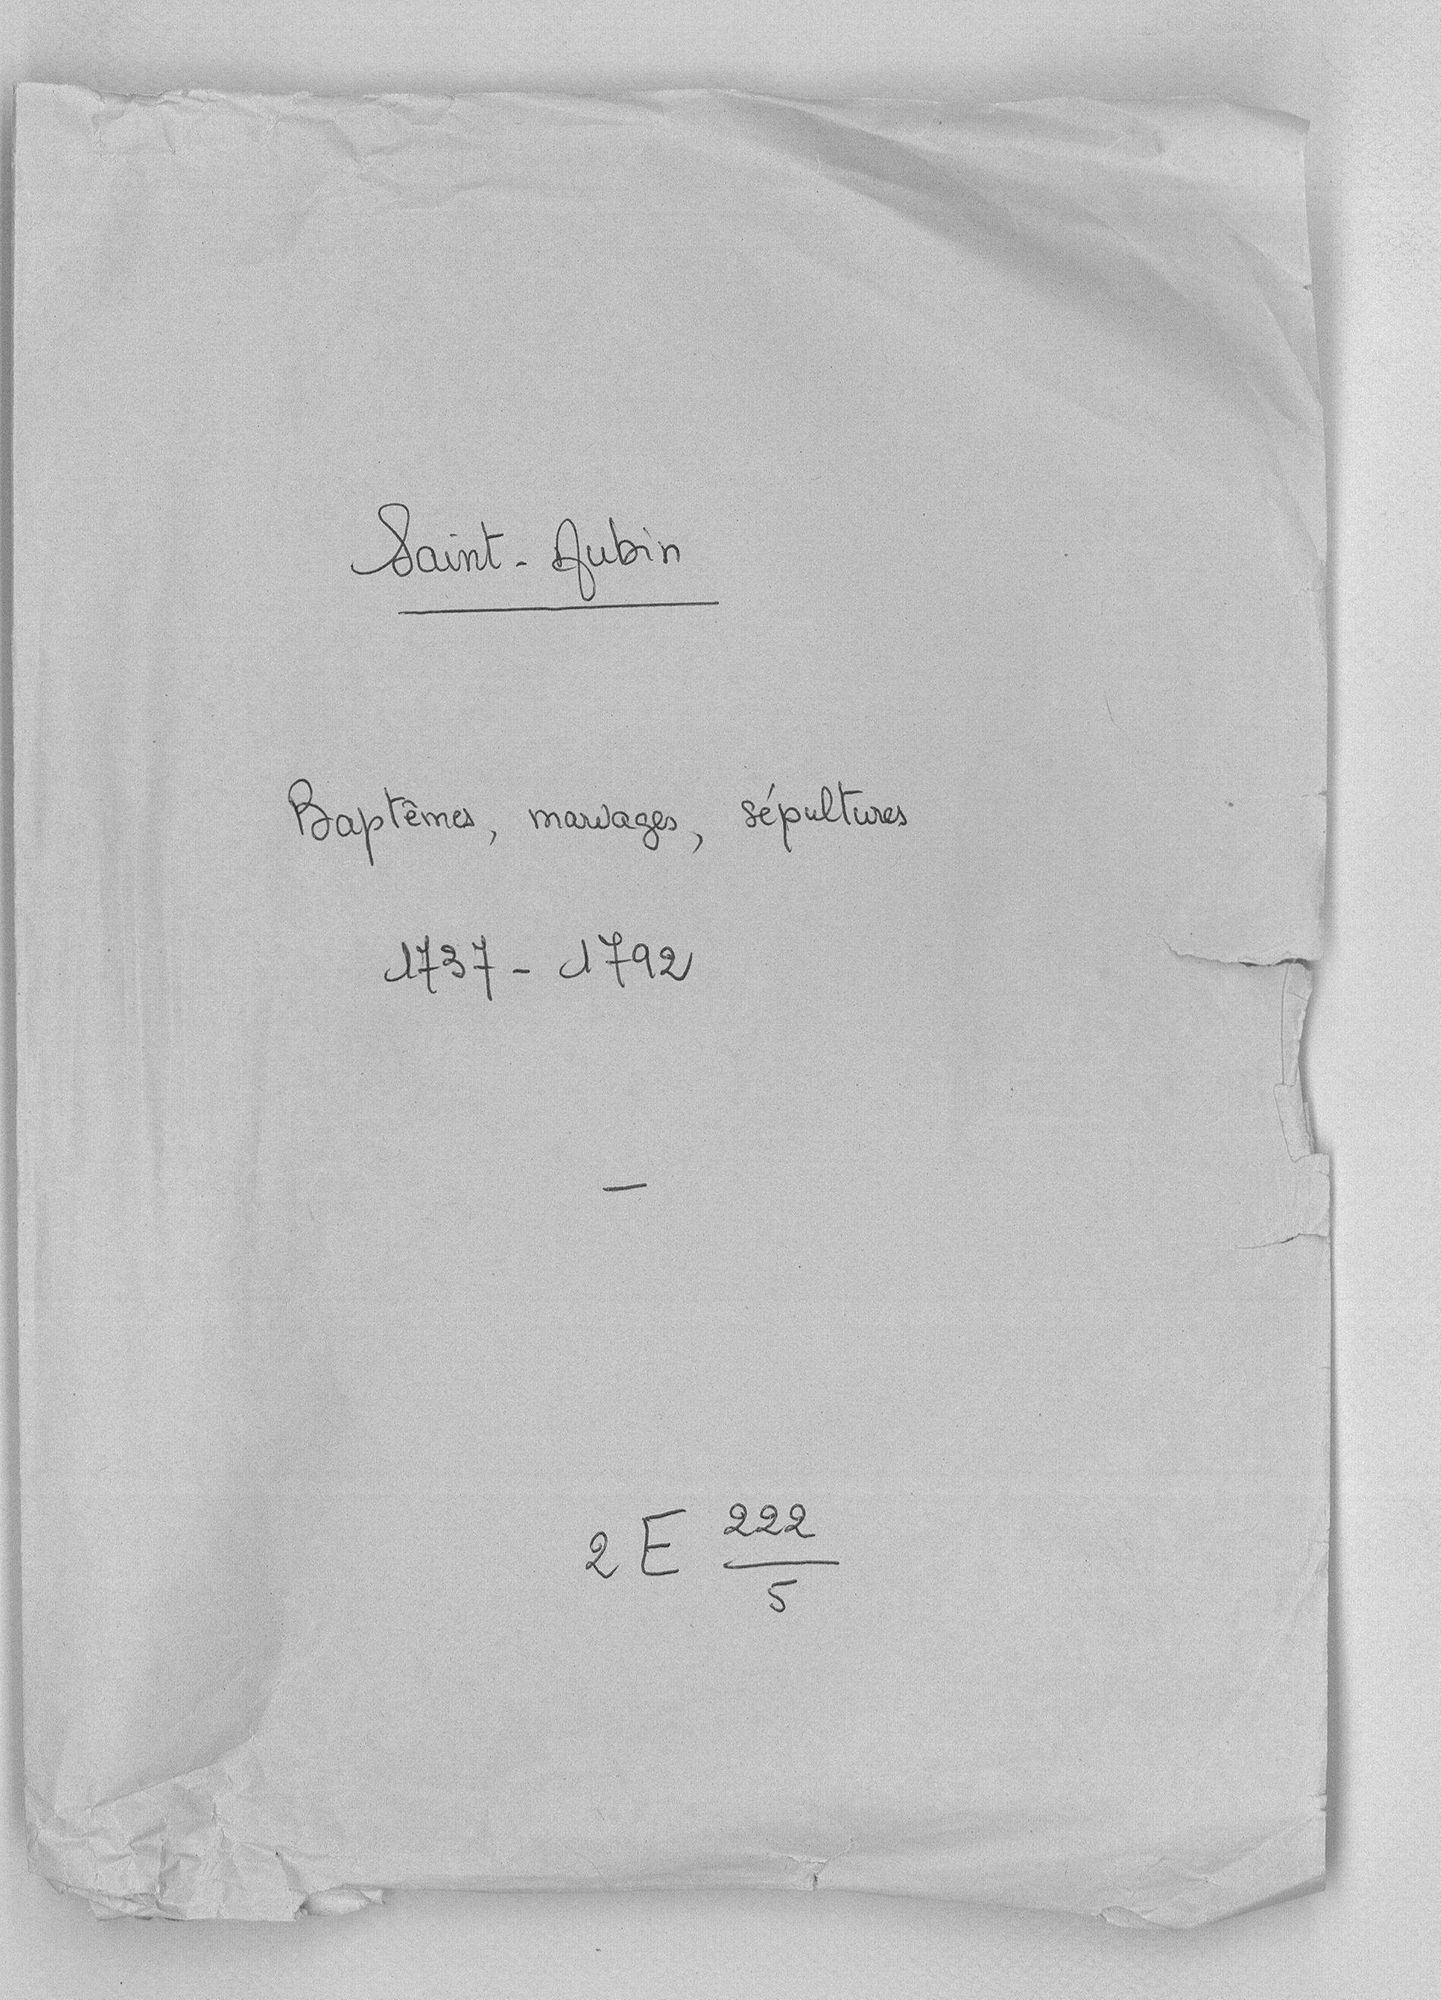 Saint-Aubin
Baptêmes, mariages, sépultures
1737-1792
—
2 E 222/5